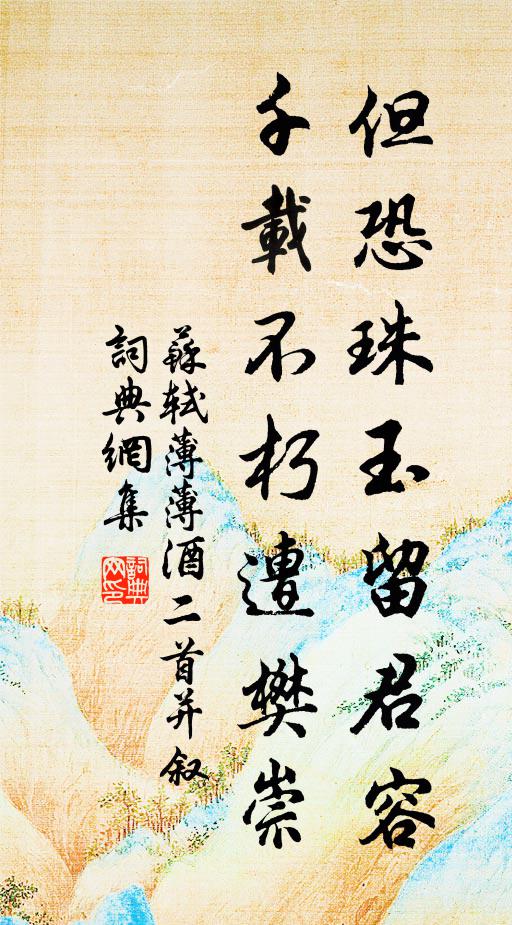 但恐珠玉留君容
千載不朽遭樊崇
蘇軾薄薄酒二首并叙
詞典網集
詞典網印